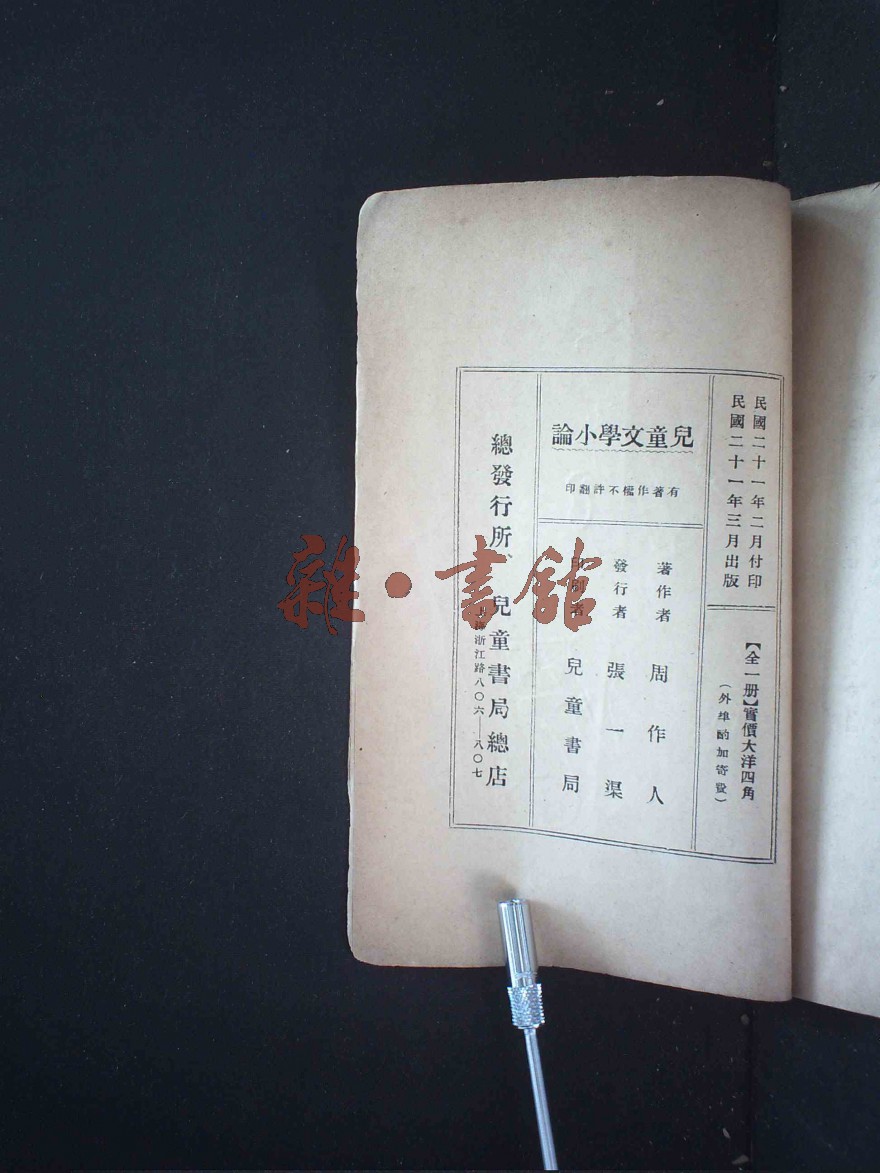 民國二十一年二月付印
民國二十一年三月出版
【全一册】實價大洋四角
（外埠酌加寄費）
兒童文學小論
有著作權不許翻印
著作者 周作人
發行者 張一渠
印刷者 兒童書局
總發行所、兒童書局總店
上海浙江路八〇六——八〇七
雜·書館